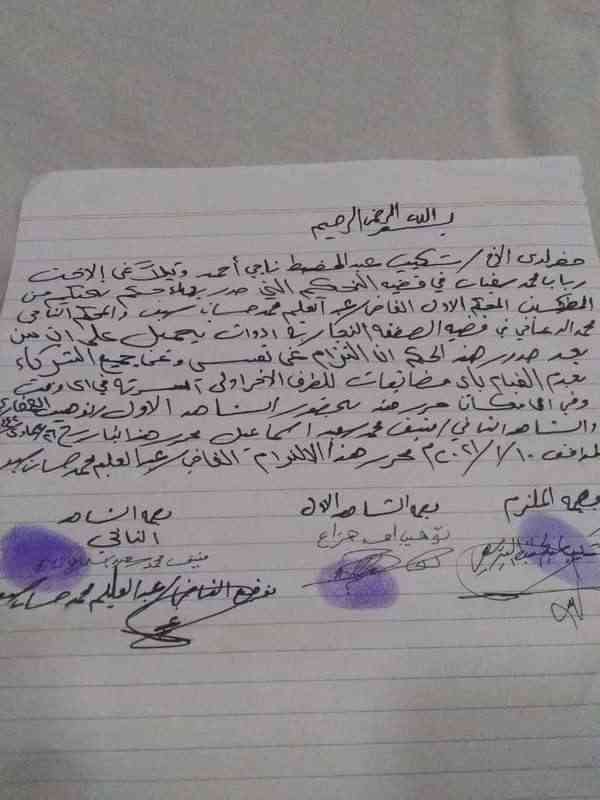 بسم الله الرحمن الرحيم
حضر لدي الاخ / شكيب عبد الحفيظ ناجي أحمد وكيلاً عن الاخت
محمد سفيان في قضية التحكيم التي صدر بهاء حكم من
المحكمين المحكم الاول القاضي عبد العليم محمد حسان والمحكم الثاني
محمد الدعاني في قضية الصفقة التجارية ادوات تجميل على ان من
بعد صدور هذا الحكم انا التزام عن نفسي وعن جميع الشركاء
بعدم القيام بأي مضايقات للطرف الاخر او في اي وقت
وفي اي مكان حرر هذا بحضور الشاهد الاول / توهيب
والشاهد الثاني / منيف محمد سعيد اسماعيل محرر هذا بتاريخ
الموافق ١٠ / ١ / ٢٠٢١م محرر هذا الالتزام القاضي / عبد العليم محمد حسان
بصمة الملتزم
بصمة الشاهد الاول
توهيب هزاع
بصمة الشاهد
الثاني
منيف محمد سعيد
توقيع القاضي / عبد العليم محمد حسان